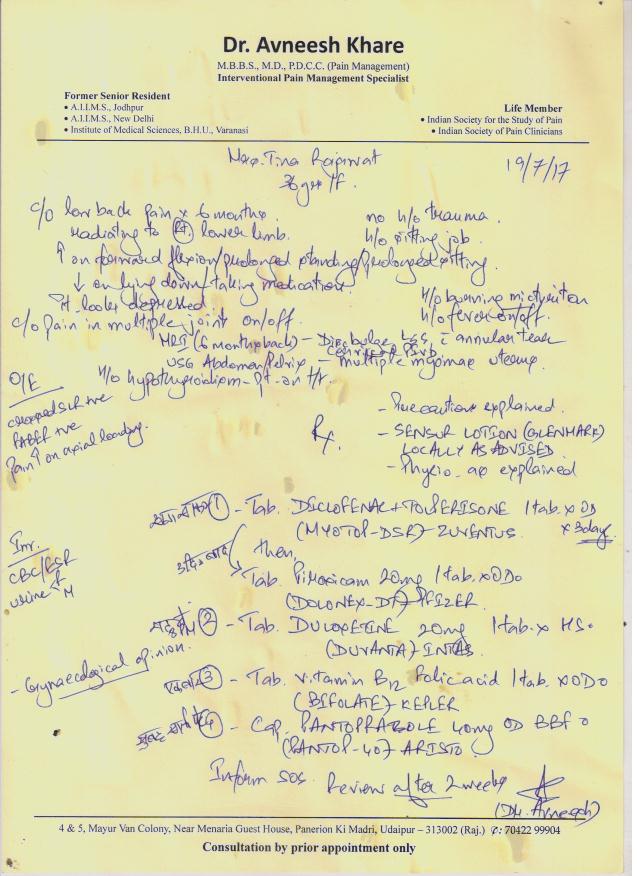 Dr. Avneesh Khare
M.B.B.S., M.D., P.D.C.C. (Pain Management)
Interventional Pain Management Specialist
Former Senior Resident
• A.I.I.M.S., Jodhpur
• A.I.I.M.S., New Delhi
• Institute of Medical Sciences, B.H.U., Varanasi
Life Member
• Indian Society for the Study of Pain
• Indian Society of Pain Clinicians
Mrs. Tina Rajawat
36 yrs/f.
19/7/17
c/o low back pain x 6 months.
radiating to Rt. lower limb.
↑ on forward flexion/prolonged standing/prolonged sitting.
↓ on lying down/taking medication.
Pt. looks depressed.
no h/o trauma.
h/o sitting job.
H/o burning micturition
h/o fever on/off.
c/o pain in multiple joint on/off.
MRI (6 months back) - Disc bulge L5S1 c annular tear
USG Abdomen/Pelvis - multiple myomas uterus.
H/o hypothyroidism - Pt. on t/t.
O/E
crossed SLR +ve
FABER +ve
Pain ↑ on axial loading.
Rx.
- Precaution explained.
- SENSUR LOTION (GLENMARK)
LOCALLY AS ADVISED
- Physio. as explained
1 - Tab. DICLOFENAC + TOLPERISONE 1 tab. x OD
(MYOTOP-DSR) - ZUVENTUS. x 3 days
then,
Tab. Piroxicam 20mg 1 tab. x OD
(DOLONEX-DT) - PFIZER
Inv.
CBC/ESR
urine R/M
8 PM 2 - Tab. DULOXETINE 20mg 1 tab. x HS.
(DUVANTA) - INTAS
- Gynaecological opinion.
3 - Tab. vitamin B12 Folic acid 1 tab x OD
(BIFOLATE) KEPLER
4 - Cap. PANTOPRAZOLE 40mg OD BBF
(PANTOP-40) ARISTO
Inform SOS. Review after 2 weeks
(Dr. Avneesh)
4 & 5, Mayur Van Colony, Near Menaria Guest House, Panerion Ki Madri, Udaipur – 313002 (Raj.) ✆: 70422 99904
Consultation by prior appointment only